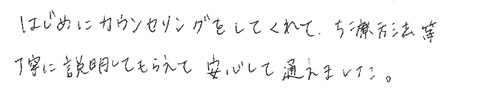 はじめにカウンセリングをしてくれて、ち療方法等
丁寧に説明してもらえて安心して通えました。